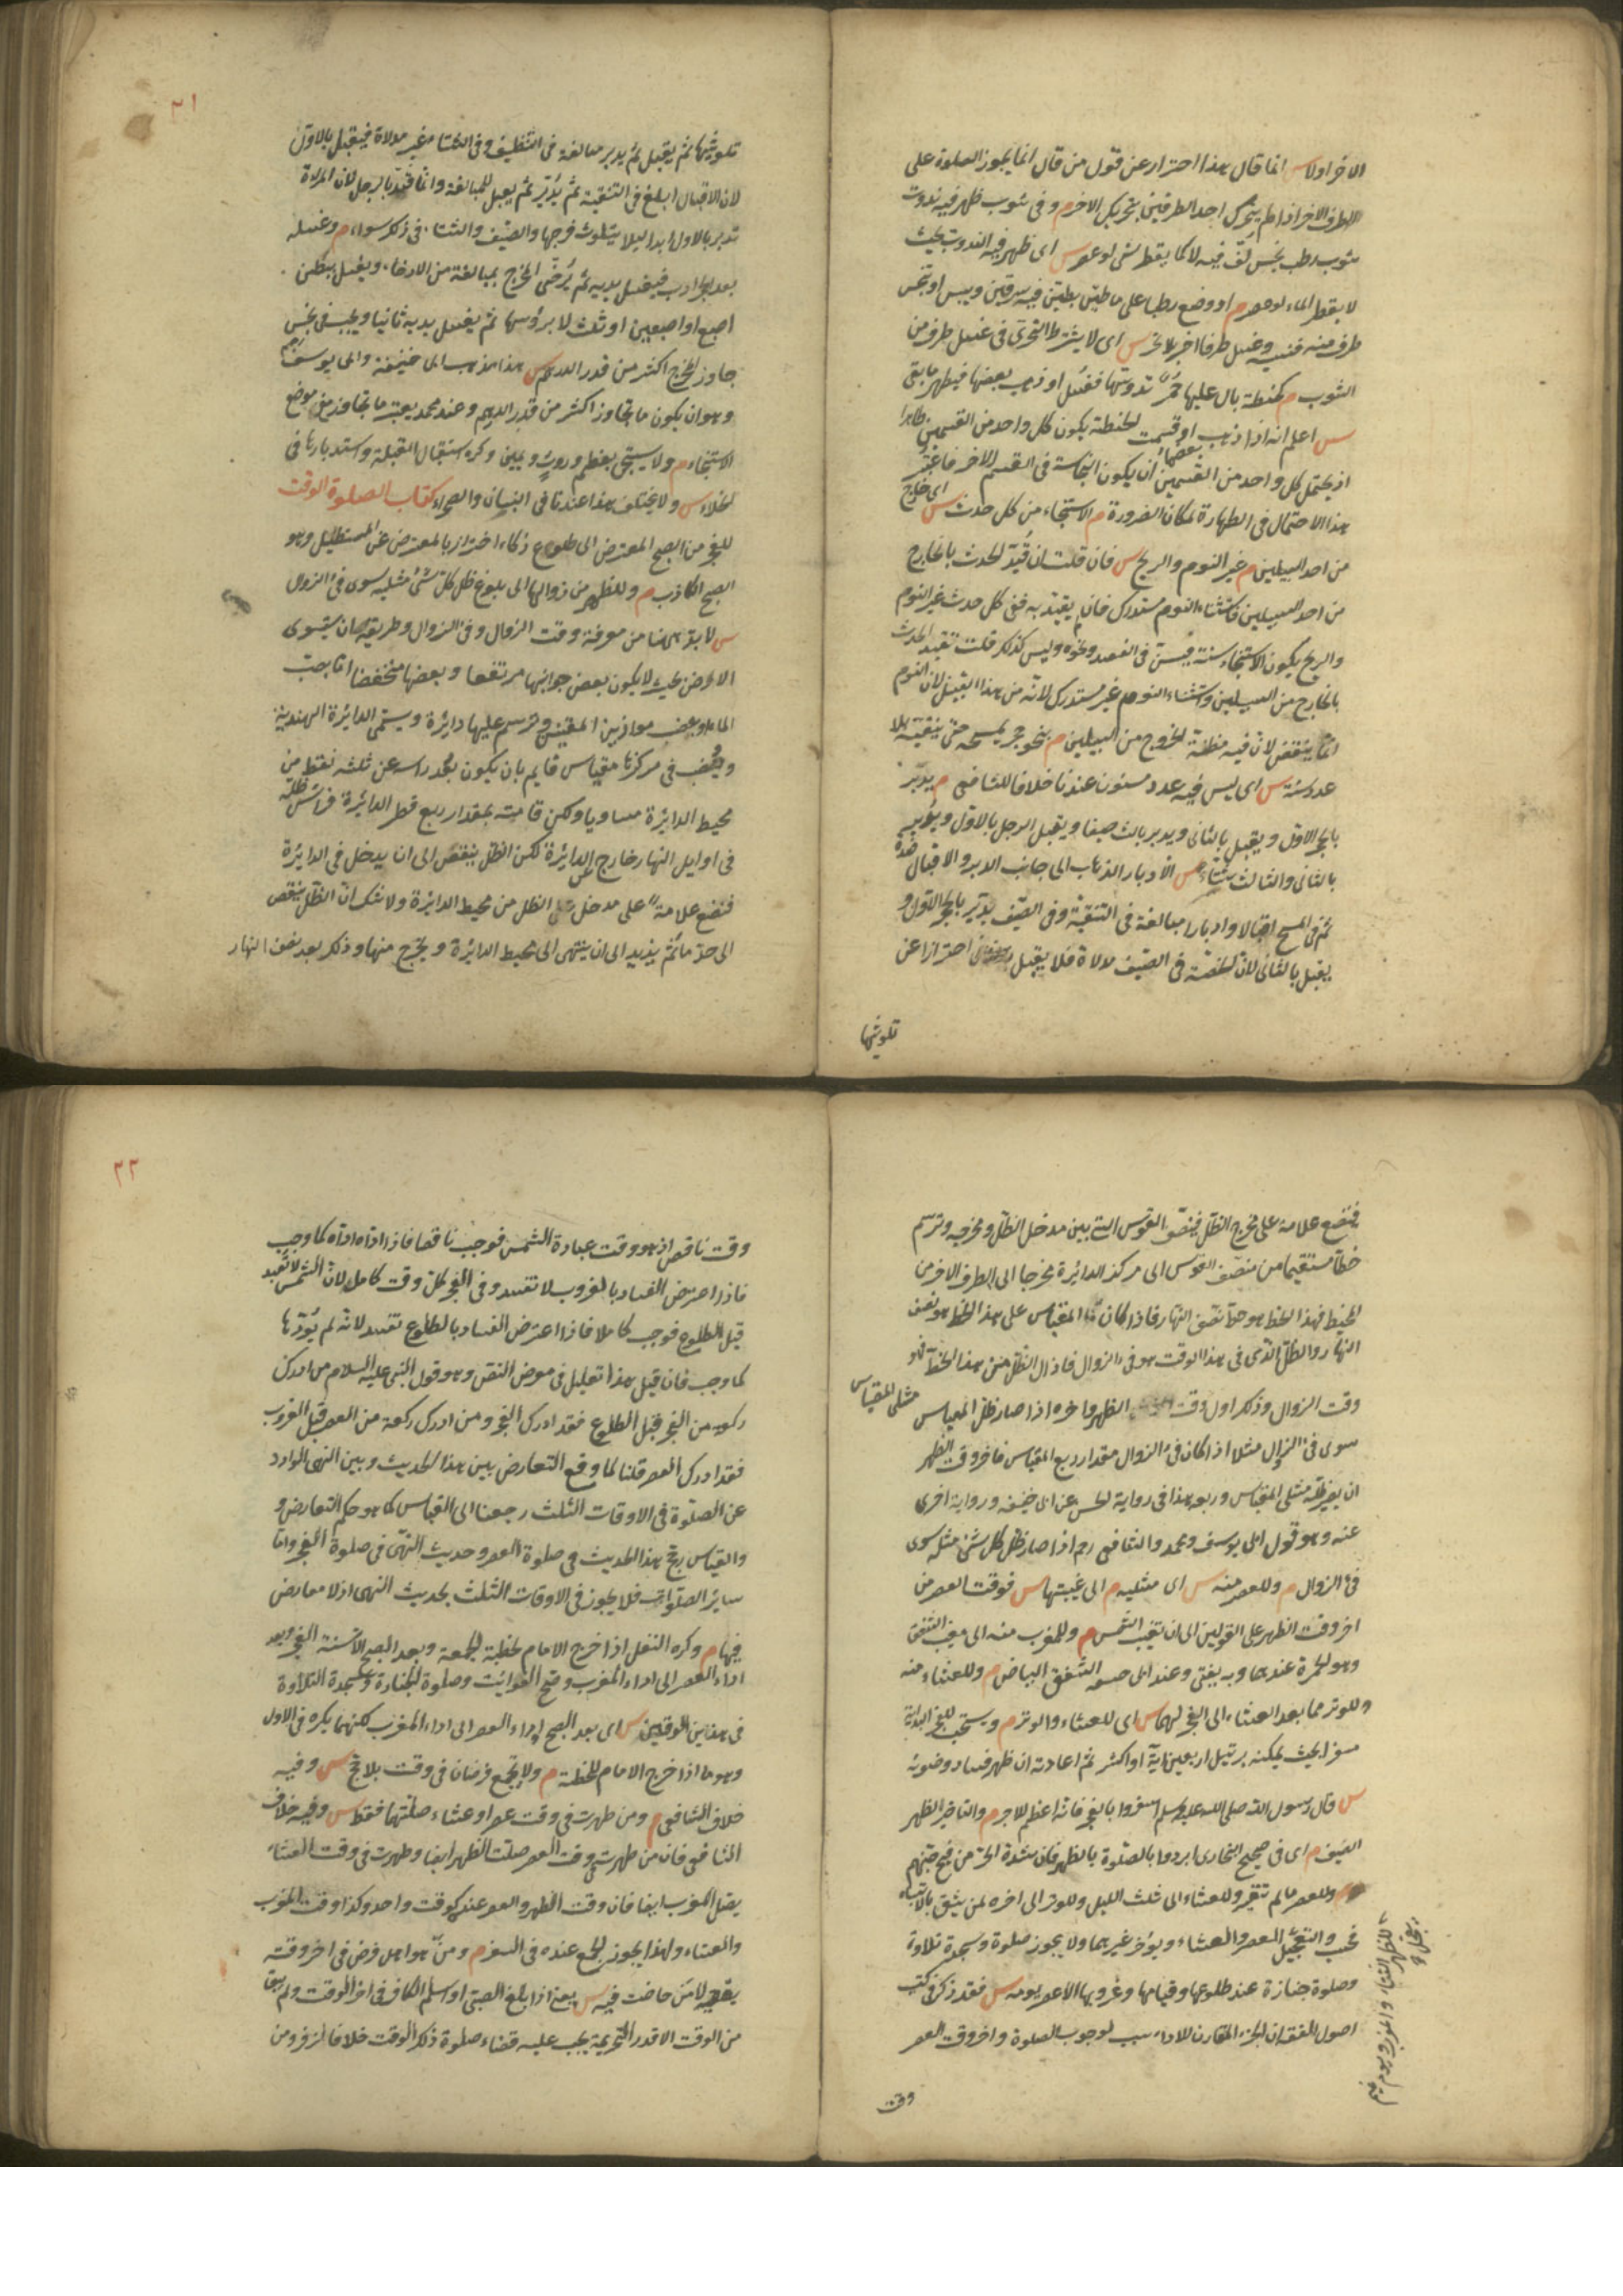 الاخر اولا س انما قال هذا احترازا عن قول من قال انما يجوز الصلوة على
الطرف الاخر اذا لم يتحرك احد الطرفين بتحريك الاخر م وفى ثوب ظهر فيه ندوت
ثوب رطب نجس لف فيه لا كما يقطر شئ لو عصر س اى ظهر فيه الندوة بحيث
لا يقطر الماء لو عصر م او وضع رطبا على ما طين بطين فيه سرقين ويبس او تنجس
طرف منه فنسيه وغسل طرفا اخر بلا تحر س اى لا يشترط التحرى فى غسل طرف من
الثوب م كحنطة بال عليها حمر تدوسها فقسم او ذهب بعضها فيطهر ما بقى
س اعلم انه اذا ذهب بعضها او قسمت الحنطة يكون كل واحد من القسمين طاهرا
اذ يحتمل كل واحد من القسمين ان يكون النجاسة فى القسم الاخر فاعتبر
هذا الاحتمال فى الطهارة لمكان الضرورة م الاستنجاء من كل حدث س اى خارج
من احد السبيلين م غير النوم والريح س فان قلت ان قيد الحدث بالخارج
من احد السبيلين فاستثناء النوم مستدرك فان لم يقيد به ففى كل حدث غير النوم
والريح يكون الاستنجاء سنة فيسن فى الفصد ونحوه وليس كذلك قلت تقيد الحدث
بالخارج من السبيلين واستثناء النوم غير مستدرك لانه من هذا القبيل لان النوم
انما ينقض لان فيه مظنة الخروج من السبيلين م بنحو حجر يمسحه حتى ينقيه بلا
عدد سنة س اى ليس فيه عدد مسنون عندنا خلافا للشافعى م يدبر
بالحجر الاول ويقبل بالثانى ويدبر بالثالث صيفا ويقبل الرجل بالاول ويدبر
بالثانى والثالث شتاء س الادبار الذهاب الى جانب الدبر والاقبال ضده
ثم فى المسح اقبالا وادبارا مبالغة فى التنقية وفى الصيف يدبر بالحجر الاول و
يقبل بالثانى لان الخصية فى الصيف مدلاة فلا يقبل احترازا عن
تلويثها
٢١
تلويثها ثم يقبل ثم يدبر مبالغة فى التنظيف وفى الشتاء غير مدلاة فيقبل بالاول
لان الاقبال ابلغ فى التنقية ثم يدبر ثم يقبل للمبالغة وانما قيد بالرجل لان المراة
تدبر بالاول ابدا ليلا يتلوث فرجها والصيف والشتاء فى ذلك سواء م وغسله
بعد الحجر ادب فيغسل يديه ثم يرخى المخرج بمبالغة من الارخاء ويغسله ببطن
اصبع او اصبعين او ثلث لا برؤسها ثم يغسل يديه ثانيا ويجب فى نجس
جاوز المخرج اكثر من قدر الدرهم س هذا مذهب ابى حنيفة وابى يوسف رحم
وهو ان يكون ما تجاوز اكثر من قدر الدرهم وعند محمد يعتبر ما تجاوز مع موضع
الاستنجاء م ولا يستنجى بعظم وروث ويمين وكره استقبال القبلة واستدبارها فى
الخلاء س ولا يختلف هذا عندنا فى البنيان والصحراء كتاب الصلوة الوقت
للفجر من الصبح المعترض الى طلوع ذكاء احترز بالمعترض عن المستطيل وهو
الصبح الكاذب م وللظهر من زوالها الى بلوغ ظل كل شئ مثليه سوى فئ الزوال
س لا بد هنا من معرفة وقت الزوال وفئ الزوال وطريقه ان يسوى
الارض بحيث لا يكون بعض جوانبها مرتفعا وبعضها منخفضا اما بصب
الماء او ببعض موازين المقنيين وترسم عليها دائرة ويسمى الدائرة الهندية
وينصب فى مركزها مقياس قايم بان يكون بعد راسه عن ثلثه نقط من
محيط الدائرة مساويا ولكن قامته بمقدار ربع قطر الدائرة فراس ظله
فى اوايل النهار خارج عن الدائرة لكن الظل ينقص الى ان يدخل فى الدايرة
فتضع علامة على مدخل الظل من محيط الدايرة ولا شك ان الظل ينقص
الى حد ما ثم يزيد الى ان ينتهى الى محيط الدايرة ويخرج منها وذلك بعد نصف النهار
فتضع علامة على مخرج الظل فينصف القوس التى بين مدخل الظل ومخرجه وترسم
خطا مستقيما من منصف القوس الى مركز الدائرة مخرجا الى الطرف الاخر من
المحيط فهذا الخط هو خط نصف النهار فاذا كان ظل المقياس على هذا الخط هو نصف
النهار والظل الذى فى هذا الوقت هو فئ الزوال فاذا زال الظل من هذا الخط فهو
وقت الزوال وذلك اول وقت الظهر واخره اذا صار ظل المقياس مثلى المقياس
سوى فئ الزوال مثلا اذا كان فئ الزوال مقدار ربع المقياس فاخر وقت الظهر
ان يصير ظله مثلى المقياس وربعه هذا فى رواية الحسن عن ابى حنيفه ورواية اخرى
عنه وهو قول ابى يوسف ومحمد والشافعى رحم اذا صار ظل كل شئ مثله سوى
فئ الزوال م وللعصر منه س اى مثليه م الى غيبتها س فوقت العصر من
اخر وقت الظهر على القولين الى ان تغيب الشمس م وللمغرب منه الى مغيب الشفق
وهو الحمرة عندهما وبه يفتى وعند ابى حنيفه الشفق البياض م وللعشاء منه
وللوتر مما بعد العشاء الى الفجر لهما س اى للعشاء والوتر م ويستحب للفجر البداية
مسفرا بحيث يمكنه ترتيل اربعين اية او اكثر ثم اعادته ان ظهر فساد وضوئه
س قال رسول الله صلى الله عليه وسلم اسفروا بالفجر فانه اعظم للاجر م والتاخير لظهر
الصيف م اى فى صحيح البخارى ابردوا بالصلوة بالظهر فان شدة الحر من فيح جهنم
م وللعصر ما لم تتغير وللعشاء الى ثلث الليل وللوتر الى اخره لمن يثق بالانتباه
فحسب والتعجيل لظهر الشتاء والمغرب ويوم غيم
يعجل العصر والعشاء ويؤخر غيرهما ولا يجوز صلوة وسجدة تلاوة
وصلوة جنازة عند طلوعها وقيامها وغروبها الا عصر يومه س فقد ذكر فى كتب
اصول الفقه ان الجزء المقارن للاداء سبب لوجوب الصلوة واخر وقت العصر
وقت
٢٢
وقت ناقص اذ هو وقت عبادة الشمس فوجب ناقصا فاذا اداه اداه كما وجب
فاذا اعترض الفساد بالغروب لا تفسد وفى الفجر كل وقت كامل لان الشمس لا تعبد
قبل الطلوع فوجب كاملا فاذا اعترض الفساد بالطلوع تفسد لانه لم يؤدها
كما وجب فان قيل هذا تعليل فى معرض النص وهو قول النبى عليه السلام من ادرك
ركعة من الفجر قبل الطلوع فقد ادرك الفجر ومن ادرك ركعة من العصر قبل الغروب
فقد ادرك العصر قلنا لما وقع التعارض بين هذا الحديث وبين النهى الوارد
عن الصلوة فى الاوقات الثلث رجعنا الى القياس كما هو حكم التعارض و
والقياس رجح هذا الحديث فى صلوة العصر وحديث النهى فى صلوة الفجر واما
ساير الصلوات فلا يجوز فى الاوقات الثلث بحديث النهى اذ لا معارض
فيها م وكره النفل اذا خرج الامام لخطبة الجمعة وبعد الصبح الا سنة الفجر وبعد
اداء العصر الى اداء المغرب وصح الفوايت وصلوة الجنازة وسجدة التلاوة
فى هذين الوقتين س اى بعد الصبح وبعد اداء العصر الى اداء المغرب لكنهما يكره فى الاول
وهو ما اذا خرج الامام للخطبة م ولا يجمع فرضان فى وقت بلا حج س وفيه
خلاف الشافعى م ومن طهرت فى وقت عصر او عشاء صلتهما فقط س وفيه خلاف
الشافعى فان من طهرت فى وقت العصر صلت الظهر ايضا وطهرت فى وقت العشاء
يصلى المغرب ايضا فان وقت الظهر والعصر عنده كوقت واحد وكذا وقت المغرب
والعشاء ولهذا يجوز الجمع عنده فى السفر م ومن هو اهل فرض فى اخر وقته
يقضيه لا من حاضت فيه س يعنى اذا بلغ الصبى او اسلم الكافر فى اخر الوقت ولم يبق
من الوقت الا قدر التحريمة يجب عليه قضاء صلوة ذلك الوقت خلافا لزفر ومن